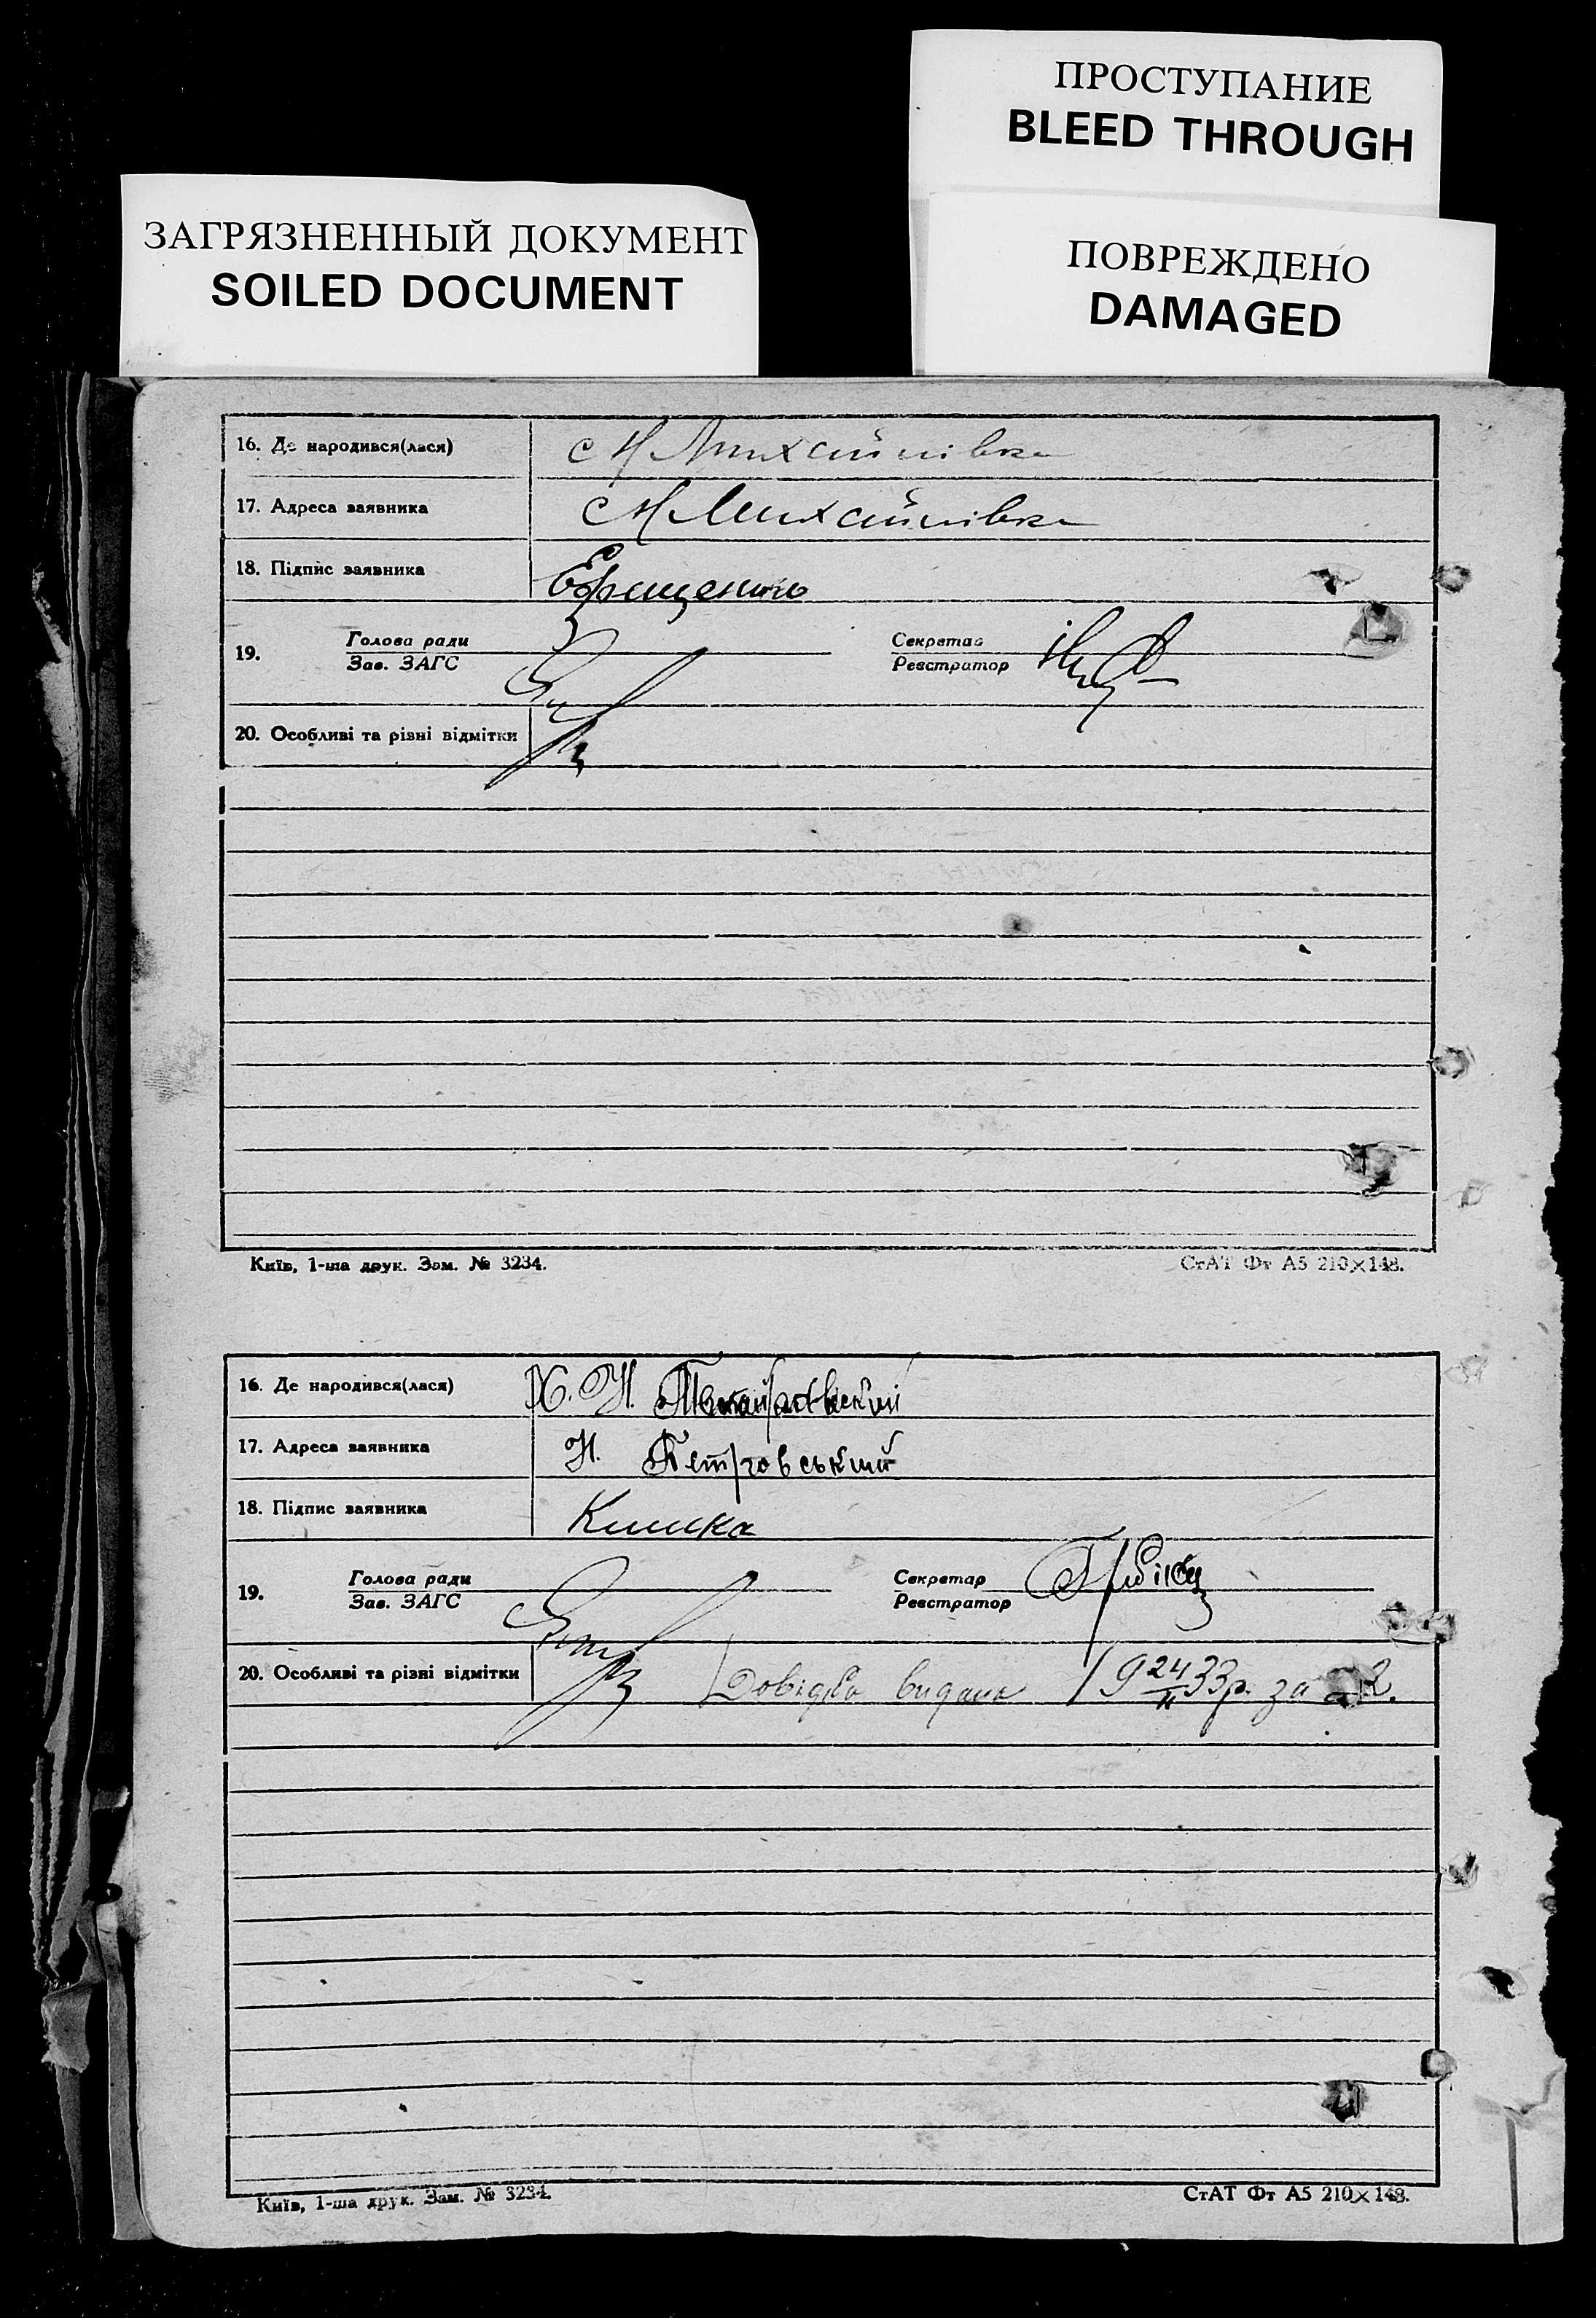 ПРОСТУПАНИЕ
BLEED THROUGH
ЗАГРЯЗНЕННЫЙ ДОКУМЕНТ
SOILED DOCUMENT
ПОВРЕЖДЕНО
DAMAGED
16. Де народився(лася) с М Михайлівка
17. Адреса заявника с М Михайлівка
18. Підпис заявника
19. Голова ради
Зав. ЗАГС
Секретар
Реєстратор
20. Особливі та різні відмітки
Київ, 1-ша друк. Зам. № 3234.
СтАТ Фт А5 210×148.
16. Де народився(лася) Х. Н.
17. Адреса заявника Н. Петровський
18. Підпис заявника Кишка
19. Голова ради
Зав. ЗАГС
Секретар
Реєстратор
20. Особливі та різні відмітки Довідка видана 19 24/II 33р. за
Київ, 1-ша друк. Зам. № 3234.
СтАТ Фт А5 210×148.